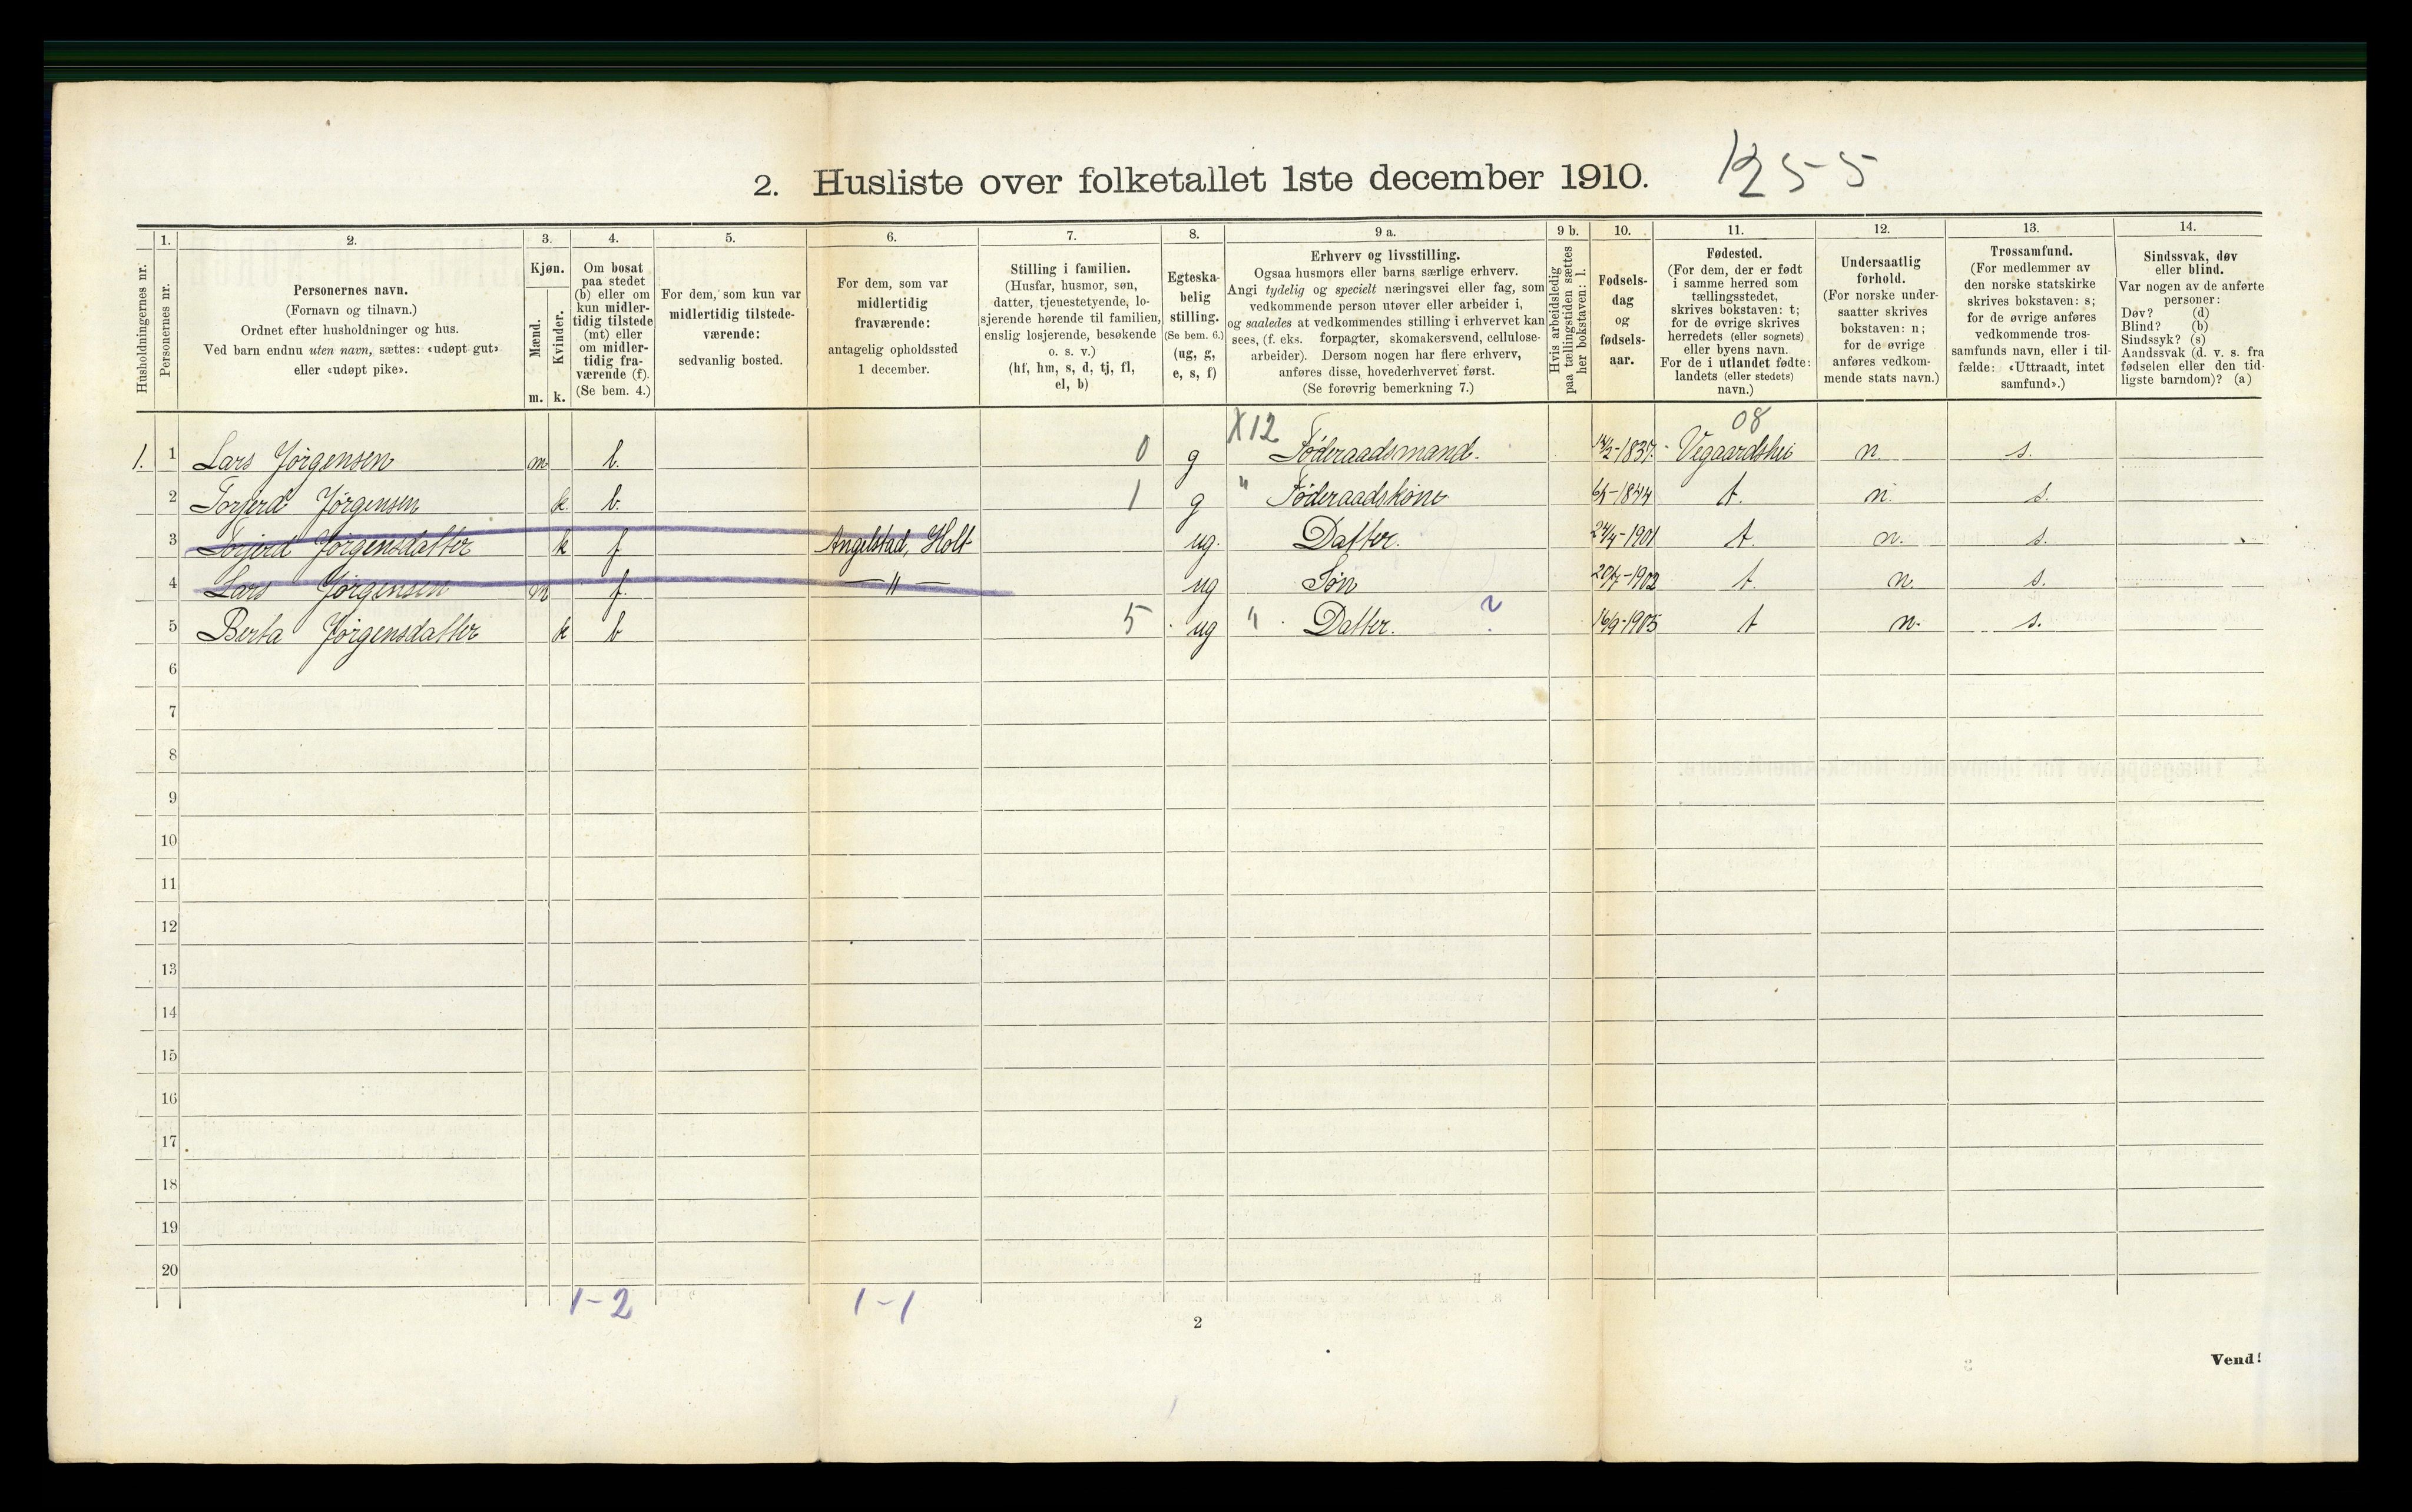 2. Husliste over folketallet 1ste december 1910. 1255
1. 2. 3. 4. 5. 6. 7. 8. 9 a. 9 b. 10. 11. 12. 13. 14.
Husholdningernes nr.
Personernes nr.
Personernes navn.
(Fornavn og tilnavn.)
Ordnet efter husholdninger og hus.
Ved barn endnu uten navn, sættes: «udøpt gut»
eller «udøpt pike».
Kjøn.
Mænd.
Kvinder.
m. k.
Om bosat
paa stedet
(b) eller om
kun midler-
tidig tilstede
(mt) eller
om midler-
tidig fra-
værende (f).
(Se bem. 4.)
For dem, som kun var
midlertidig tilstede-
værende:
sedvanlig bosted.
For dem, som var
midlertidig
fraværende:
antagelig opholdssted
1 december.
Stilling i familien.
(Husfar, husmor, søn,
datter, tjenestetyende, lo-
sjerende hørende til familien,
enslig losjerende, besøkende
o. s. v.)
(hf, hm, s, d, tj, fl,
el, b)
Egteska-
belig
stilling.
(Se bem. 6.)
(ug, g,
e, s, f)
Erhverv og livsstilling.
Ogsaa husmors eller barns særlige erhverv.
Angi tydelig og specielt næringsvei eller fag, som
vedkommende person utøver eller arbeider i,
og saaledes at vedkommendes stilling i erhvervet kan
sees, (f. eks. forpagter, skomakersvend, cellulose-
arbeider). Dersom nogen har flere erhverv,
anføres disse, hovederhvervet først.
(Se forøvrig bemerkning 7.)
Hvis arbeidsledig
paa tællingstiden sættes
her bokstaven: l.
Fødsels-
dag
og
fødsels-
aar.
Fødested.
(For dem, der er født
i samme herred som
tællingsstedet,
skrives bokstaven: t;
for de øvrige skrives
herredets (eller sognets)
eller byens navn.
For de i utlandet fødte:
landets (eller stedets)
navn.)
Undersaatlig
forhold.
(For norske under-
saatter skrives
bokstaven: n;
for de øvrige
anføres vedkom-
mende stats navn.)
Trossamfund.
(For medlemmer av
den norske statskirke
skrives bokstaven: s;
for de øvrige anføres
vedkommende tros-
samfunds navn, eller i til-
fælde: «Uttraadt, intet
samfund».)
Sindssvak, døv
eller blind.
Var nogen av de anførte
personer:
Døv? (d)
Blind? (b)
Sindssyk? (s)
Aandssvak (d. v. s. fra
fødselen eller den tid-
ligste barndom)? (a)
X12 08
1. 1 Lars Jørgensen m b. 0 g Føderaadsmand. 14/2-1837. Vegaardshei n s.
2 Torjerd Jørgensen k. b. 1 g " Føderaadskone 1844 t. n. s.
3 Torjerd Jørgensdatter k f Angelstad, Holt ug. Datter. 24/4-1901 t. n. s.
4 Lars Jørgensen m f. — " — ug Søn 20/7-1902 t. n. s.
5 Berta Jørgensdatter k b 5 ug " Datter. ? 16/9-1905 t n. s.
6
7
8
9
10
11
12
13
14
15
16
17
18
19
20
1-2 1-1
2
Vend!